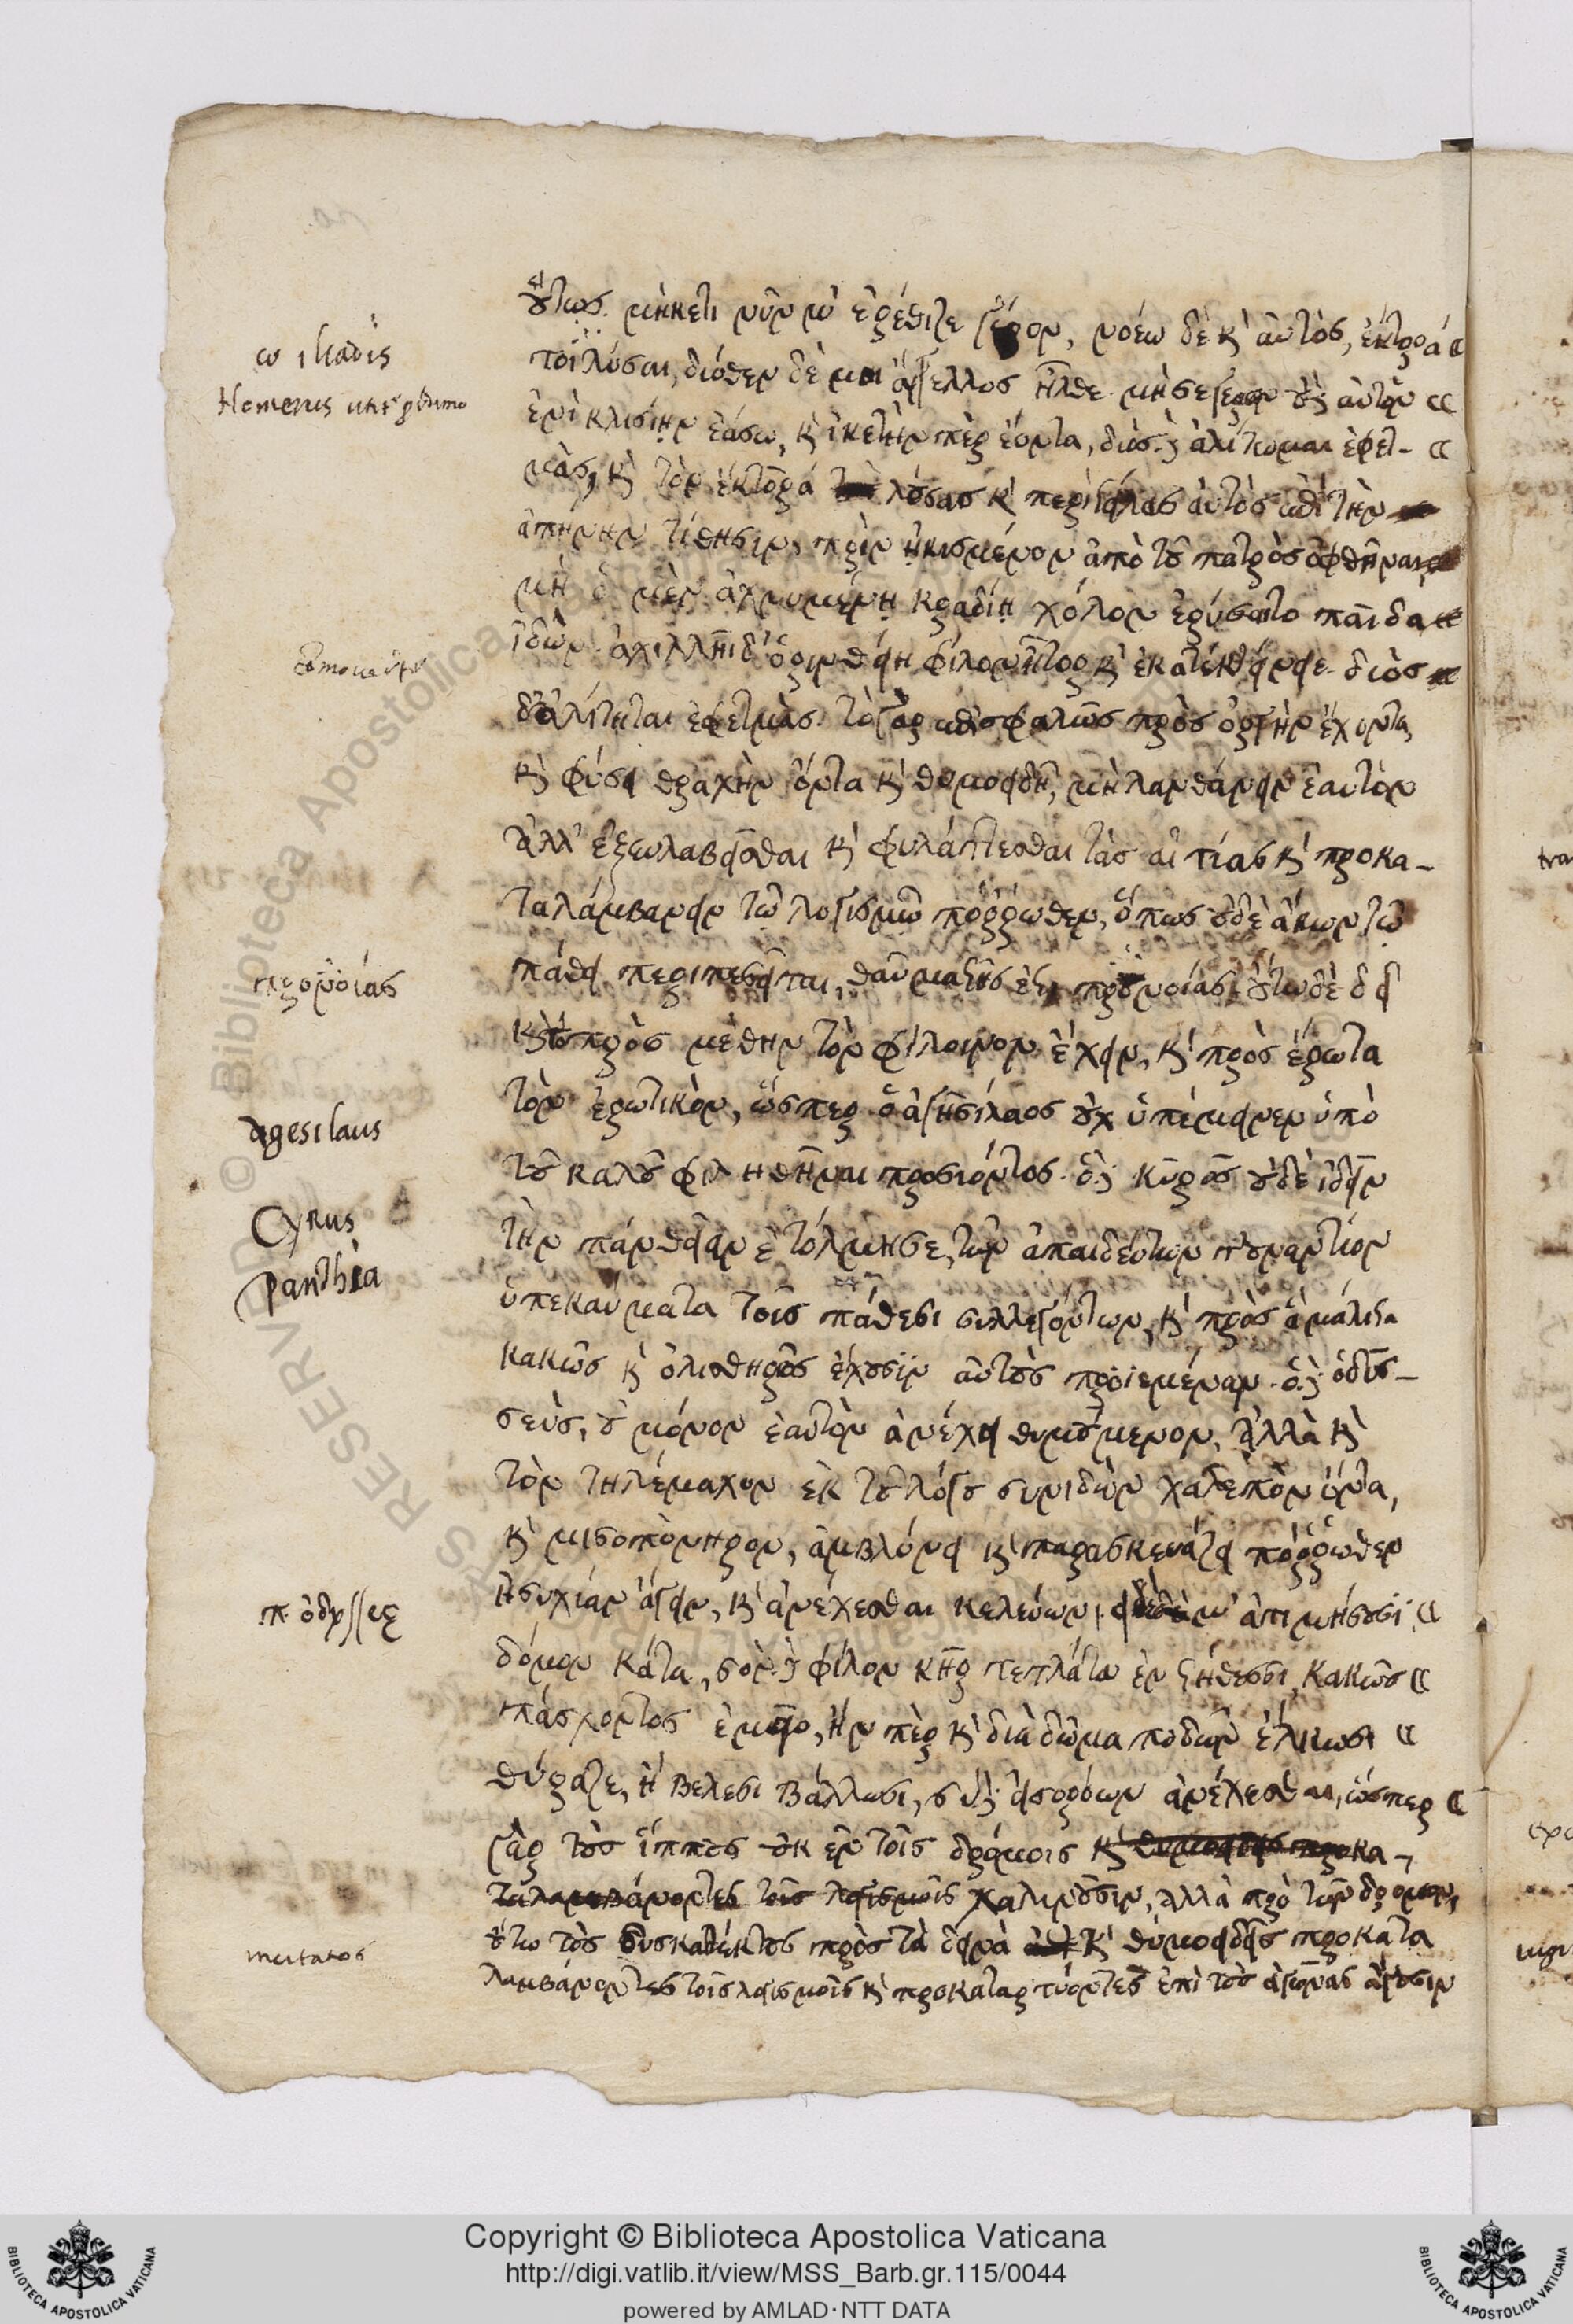 ω iliadis
Homerus
προνοίας
agesilaus
Cyrus
Panthèa
οὕτως. μηκέτι νῦν μ' ἐρέθιζε γέρον, νοέω δὲ κὶ αὐτὸς, ἕκτορά
τοι λῦσαι, διόθεν δέ μοι ἄγγελλος ἦλθε. μή σε γέρον οὐδ' αὐτὸν
ἐνὶ κλισίῃν ἐάσω, κὶ ἱκέτην πὲρ ἐόντα, διὸς δ' ἀλίτωμαι ἐφετ-
μὰς, κὶ τὸν ἕκτορά λούσας κὶ περιστείλας αὐτὸς ἐπὶ τὴν
ἀπήνην τίθησιν, πρὶν ᾐκισμένον ἀπὸ τοῦ πατρὸς ὀφθῆναι
μὴ ὁ μὲν ἀχνυμένῃ κραδίῃ χόλον ἐρύσαιτο παῖδα
ἰδὼν. ἀχιλλῆι δ' ὀρινθείη φίλον ἦτορ κὶ ἑ κατακτείνειε. διὸς
δ' ἀλίτηται ἐφετμὰς. τὸ γὰρ ἐπισφαλῶς πρὸς ὀργὴν ἔχοντα
κὶ φύσει τραχὴν ὄντα κὶ θυμοειδῆ, μὴ λανθάνειν ἑαυτὸν
ἀλλ' ἐξευλαβεῖσθαι κὶ φυλάττεσθαι τὰς αἰτίας κὶ προκα-
ταλάμβανειν τῷ λογισμῷ πόρρωθεν, ὅπως οὐδὲ ἄκων τῷ
πάθει περιπεσεῖται, θαυμαστῆς ἐστι προνοίας. οὕτω δὲ δεῖ
κὶ πρὸς μέθην τὸν φίλοινον ἔχειν, κὶ πρὸς ἔρωτα
τὸν ἐρωτικὸν, ὥσπερ ὁ ἀγησίλαος οὐχ ὑπέμεινεν ὑπὸ
τοῦ καλοῦ φιληθῆναι προσιόντος. ὁ δὲ κῦρος οὐδὲ ἰδεῖν
τὴν πάνθειαν ἐτόλμησε, τῶν ἀπαιδεύτων τοὐναντίον
ὑπεκαύματα τοῖς πάθεσι συλλεγόντων, κὶ πρὸς ἃ μάλιστα
κακῶς κὶ ὀλισθηρῶς ἔχουσιν αὑτοὺς προϊεμέναν. ὁ δὲ ὀδυσ-
σεὺς, οὐ μόνον ἑαυτὸν ἀνέχει θυμούμενον, ἀλλὰ κὶ
τὸν τηλέμαχον ἐκ τοῦ λόγου συνιδὼν χαλεπὸν ὄντα,
κὶ μισοπόνηρον, ἀμβλύνει κὶ παρασκευάζει πόρρωθεν
ἡσυχίαν ἄγειν, κὶ ἀνέχεσθαι κελεύων. εἰ δέ μ' ἀτιμήσουσι
δόμον κάτα, σὸν δὲ φίλον κῆρ τετλάτω ἐν στήθεσσι, κακῶς
πάσχοντος ἐμεῖο, ἤν πὲρ κὶ διὰ δῶμα ποδῶν ἕλκωσι
θύραζε, ἢ βέλεσι βάλλωσι, σὺ δ' εἰσορόων ἀνέχεσθαι, ὥσπερ
γὰρ τοὺς ἵππους οὐκ ἐν τοῖς δρόμοις
χαλινοῦσιν, ἀλλὰ πρὸ τῶν δρόμων,
οὕτω τοὺς δυσκαθέκτους πρὸς τὰ δεινὰ κὶ θυμοειδεῖς προκατα
λαμβάνοντες τοῖς λογισμοῖς κὶ προκαταρτύοντες ἐπὶ τοὺς ἀγῶνας ἄγουσιν
Copyright © Biblioteca Apostolica Vaticana
http://digi.vatlib.it/view/MSS_Barb.gr.115/0044
powered by AMLAD·NTT DATA
BIBLIOTECA APOSTOLICA VATICANA
BIBLIOTECA APOSTOLICA VATICANA